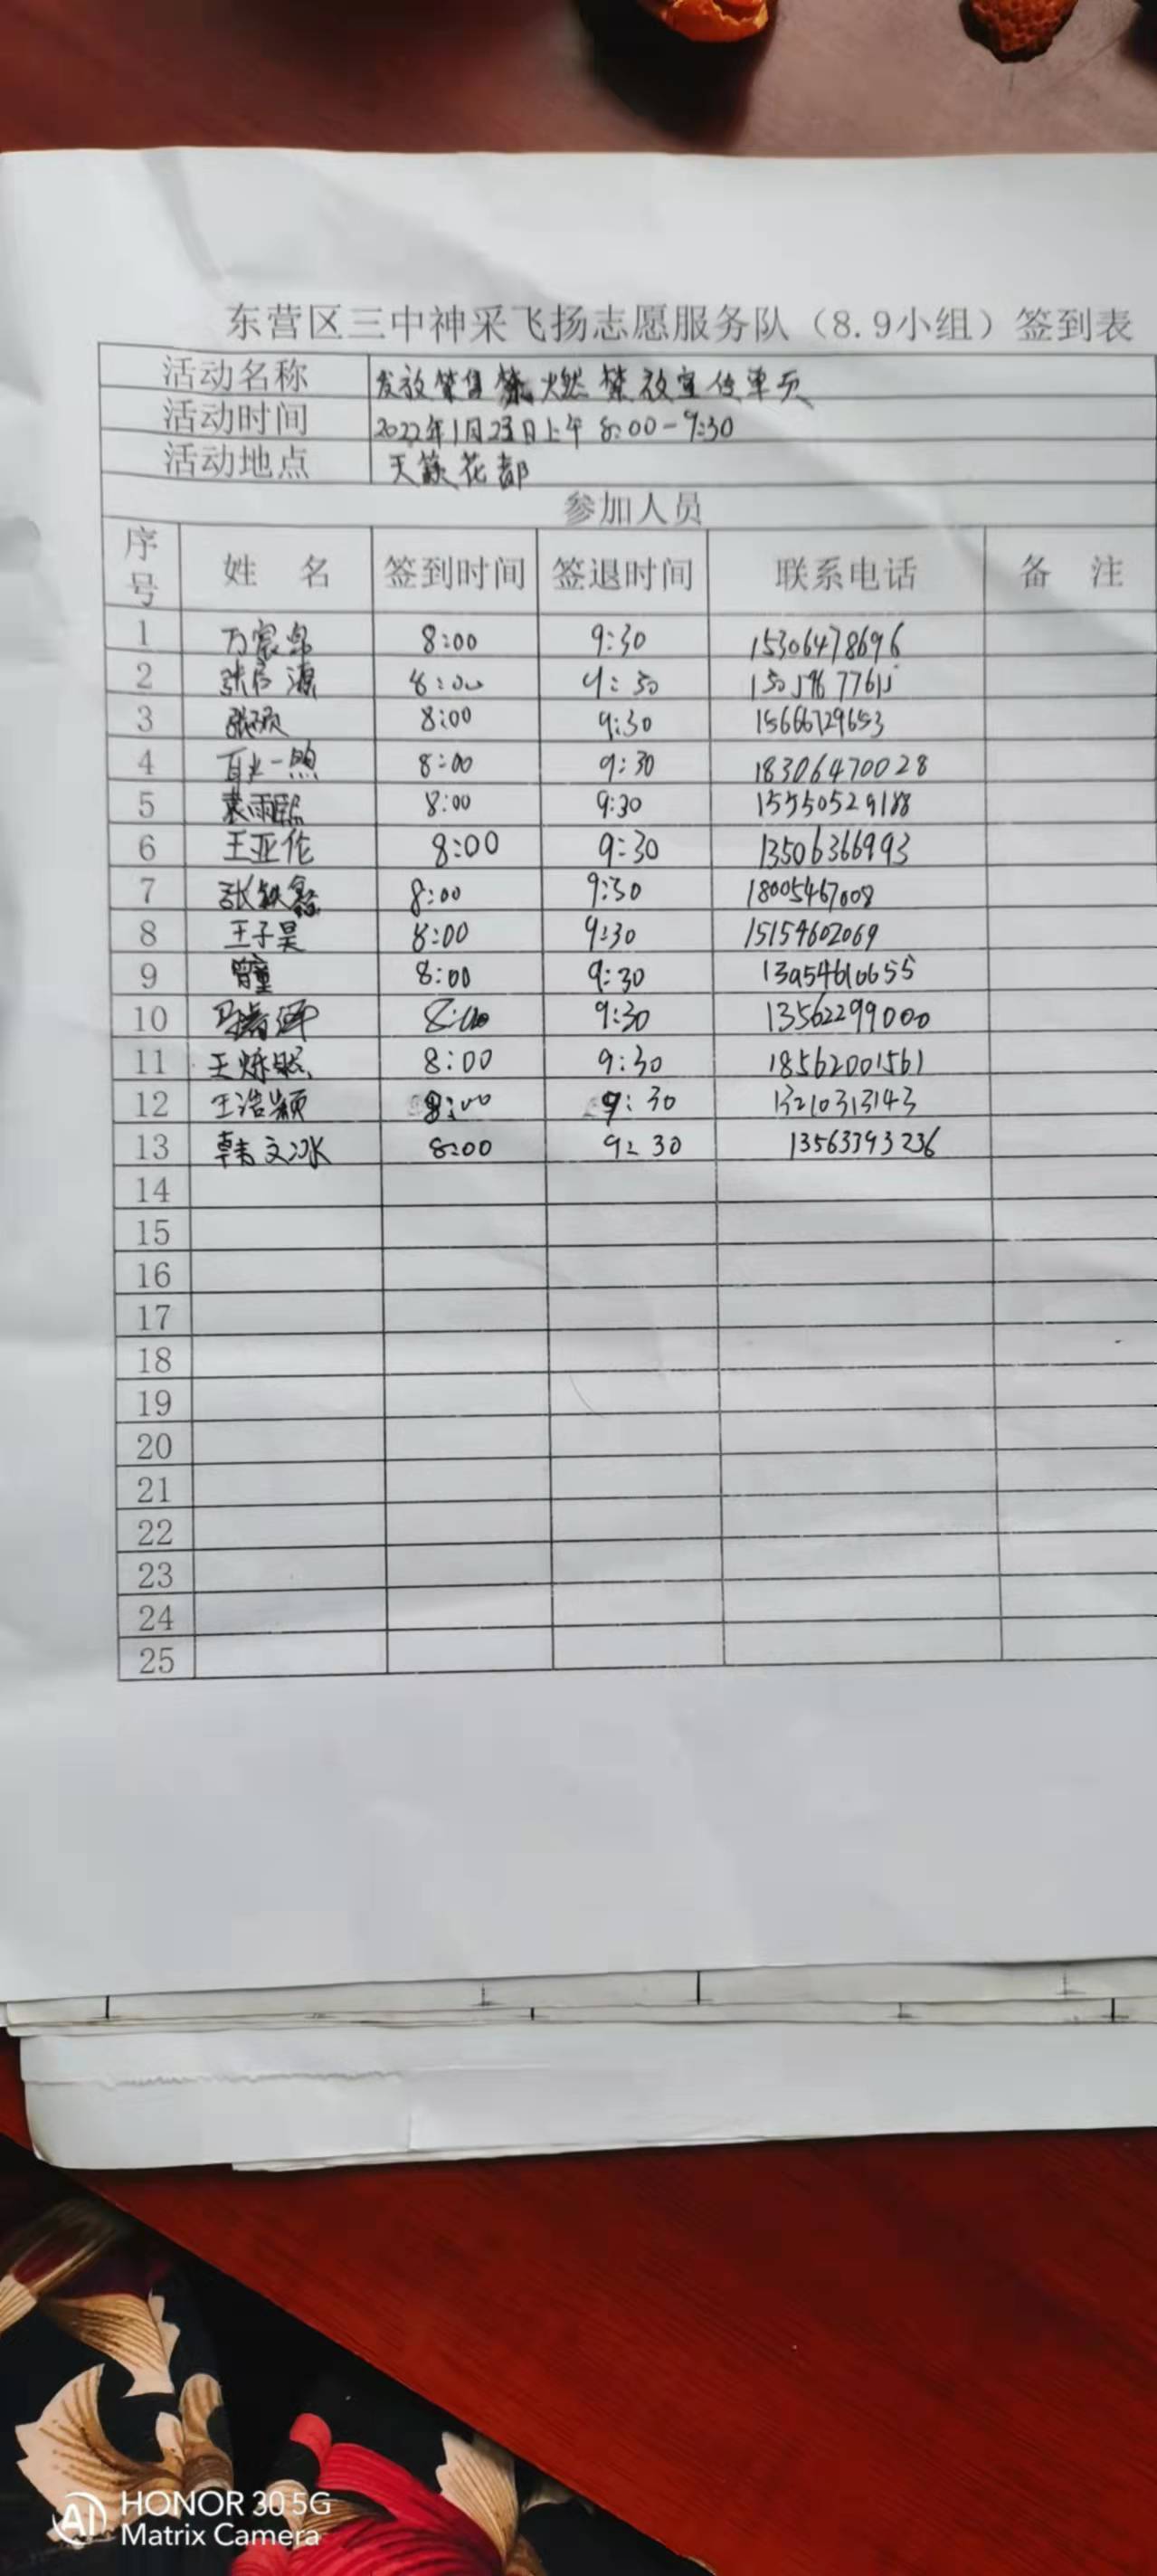 东营区三中神采飞扬志愿服务队（8.9小组）签到表
活动名称 发放禁售禁燃禁放宣传单页
活动时间 2022年1月23日上午 8:00-9:30
活动地点 天籁花都
参加人员
序号 姓 名 签到时间 签退时间 联系电话 备 注
1 8:00 9:30 15306478696
2 8:00 9:30
3 张硕 8:00 9:30 15666729653
4 8:00 9:30 18306470028
5 8:00 9:30
6 王亚伦 8:00 9:30 13506366993
7 8:00 9:30 18005467008
8 王子昊 8:00 9:30 15154602069
9 曾童 8:00 9:30
10 8:00 9:30 13562299000
11 8:00 9:30 18562001561
12 王浩颖 8:00 9:30 13210313143
13 韩文冰 8:00 9:30 13563393236
14
15
16
17
18
19
20
21
22
23
24
25
AI HONOR 30 5G
Matrix Camera